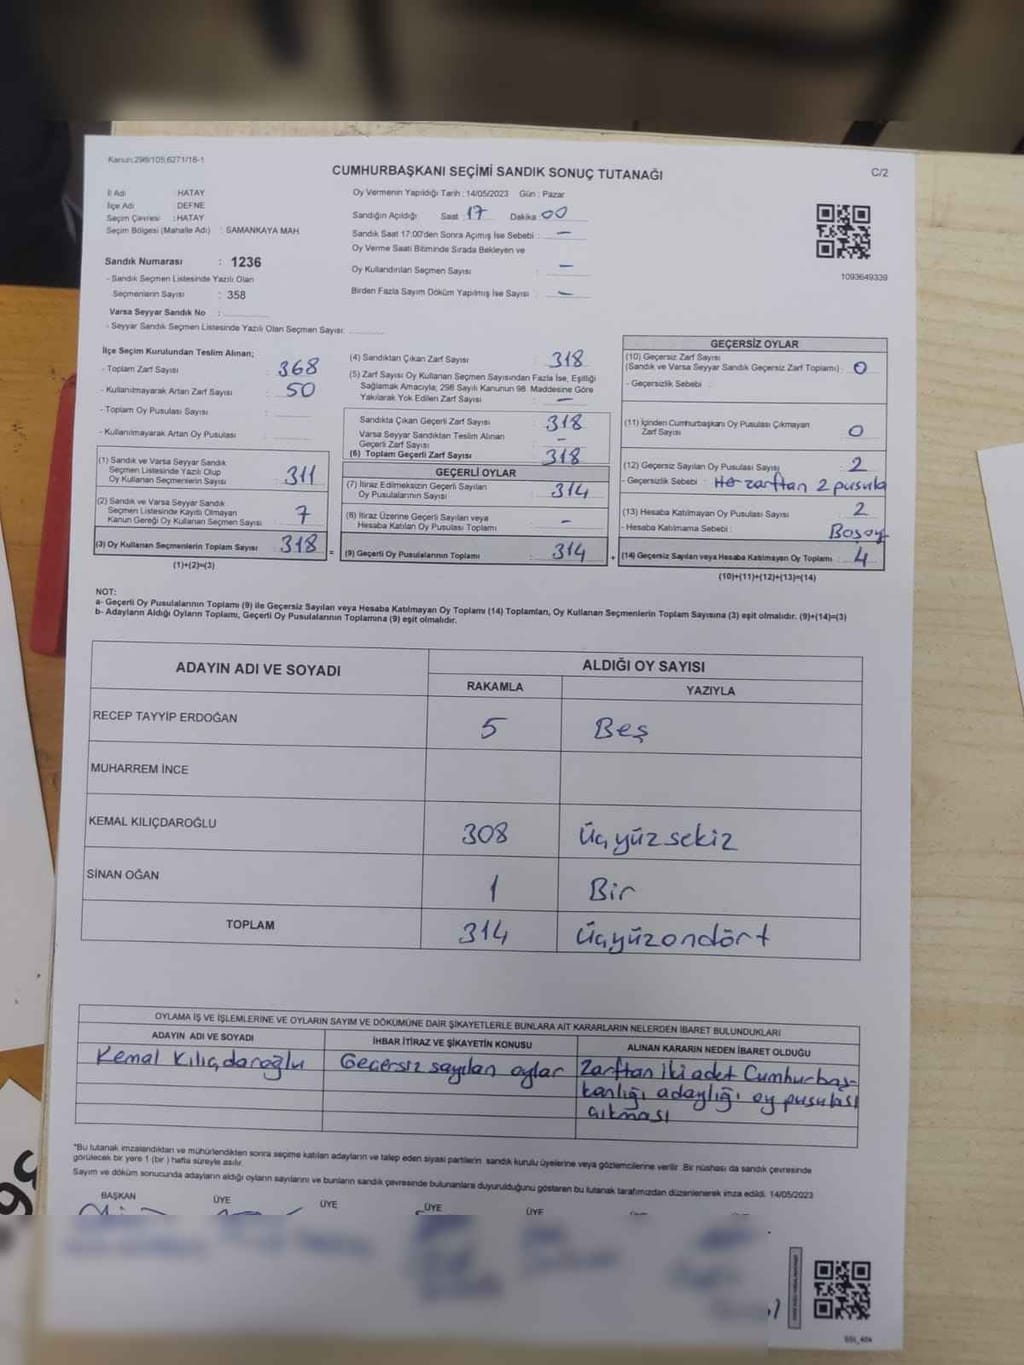 Kanun:298/105;6271/16-1
CUMHURBAŞKANI SEÇİMİ SANDIK SONUÇ TUTANAĞI
C/2
İl Adı : HATAY
İlçe Adı : DEFNE
Seçim Çevresi : HATAY
Seçim Bölgesi (Mahalle Adı) : SAMANKAYA MAH
Sandık Numarası : 1236
- Sandık Seçmen Listesinde Yazılı Olan
Seçmenlerin Sayısı : 358
Varsa Seyyar Sandık No :
- Seyyar Sandık Seçmen Listesinde Yazılı Olan Seçmen Sayısı:
Oy Vermenin Yapıldığı Tarih : 14/05/2023 Gün : Pazar
Sandığın Açıldığı Saat : 17 Dakika 00
Sandık Saat 17:00'den Sonra Açımış İse Sebebi : —
Oy Verme Saati Bitiminde Sırada Bekleyen ve
Oy Kullandırılan Seçmen Sayısı : —
Birden Fazla Sayım Döküm Yapılmış İse Sayısı : —
1093649339
İlçe Seçim Kurulundan Teslim Alınan;
- Toplam Zarf Sayısı : 368
- Kullanılmayarak Artan Zarf Sayısı : 50
- Toplam Oy Pusulası Sayısı :
- Kullanılmayarak Artan Oy Pusulası :
(1) Sandık ve Varsa Seyyar Sandık
Seçmen Listesinde Yazılı Olup
Oy Kullanan Seçmenlerin Sayısı : 311
(2) Sandık ve Varsa Seyyar Sandık
Seçmen Listesinde Kayıtlı Olmayan
Kanun Gereği Oy Kullanan Seçmen Sayısı : 7
(3) Oy Kullanan Seçmenlerin Toplam Sayısı : 318
(1)+(2)=(3)
=
(4) Sandıktan Çıkan Zarf Sayısı : 318
(5) Zarf Sayısı Oy Kullanan Seçmen Sayısından Fazla İse, Eşitliği
Sağlamak Amacıyla; 298 Sayılı Kanunun 98. Maddesine Göre
Yakılarak Yok Edilen Zarf Sayısı : —
Sandıkta Çıkan Geçerli Zarf Sayısı : 318
Varsa Seyyar Sandıktan Teslim Alınan
Geçerli Zarf Sayısı : -
(6) Toplam Geçerli Zarf Sayısı : 318
GEÇERLİ OYLAR
(7) İtiraz Edilmeksizin Geçerli Sayılan
Oy Pusulalarının Sayısı : 314
(8) İtiraz Üzerine Geçerli Sayılan veya
Hesaba Katılan Oy Pusulası Toplamı : -
(9) Geçerli Oy Pusulalarının Toplamı : 314
+
GEÇERSİZ OYLAR
(10) Geçersiz Zarf Sayısı
(Sandık ve Varsa Seyyar Sandık Geçersiz Zarf Toplamı) : 0
- Geçersizlik Sebebi :
(11) İçinden Cumhurbaşkanı Oy Pusulası Çıkmayan
Zarf Sayısı : 0
(12) Geçersiz Sayılan Oy Pusulası Sayısı : 2
- Geçersizlik Sebebi : Her zarftan 2 pusula
(13) Hesaba Katılmayan Oy Pusulası Sayısı : 2
- Hesaba Katılmama Sebebi : Boşoy
(14) Geçersiz Sayılan veya Hesaba Katılmayan Oy Toplamı : 4
(10)+(11)+(12)+(13)=(14)
NOT:
a- Geçerli Oy Pusulalarının Toplamı (9) ile Geçersiz Sayılan veya Hesaba Katılmayan Oy Toplamı (14) Toplamları, Oy Kullanan Seçmenlerin Toplam Sayısına (3) eşit olmalıdır. (9)+(14)=(3)
b- Adayların Aldığı Oyların Toplamı, Geçerli Oy Pusulalarının Toplamına (9) eşit olmalıdır.
ADAYIN ADI VE SOYADI
ALDIĞI OY SAYISI
RAKAMLA YAZIYLA
RECEP TAYYİP ERDOĞAN 5 Beş
MUHARREM İNCE
KEMAL KILIÇDAROĞLU 308 Üçyüzsekiz
SİNAN OĞAN 1 Bir
TOPLAM 314 Üçyüzondört
OYLAMA İŞ VE İŞLEMLERİNE VE OYLARIN SAYIM VE DÖKÜMÜNE DAİR ŞİKAYETLERLE BUNLARA AİT KARARLARIN NELERDEN İBARET BULUNDUKLARI
ADAYIN ADI VE SOYADI İHBAR İTİRAZ VE ŞİKAYETİN KONUSU ALINAN KARARIN NEDEN İBARET OLDUĞU
Kemal Kılıçdaroğlu Geçersiz sayılan oylar Zarftan iki adet Cumhurbaş-
kanlığı adaylığı oy pusulası
çıkması
"Bu tutanak imzalandıktan ve mühürlendikten sonra seçime katılan adayların ve talep eden siyasi partilerin sandık kurulu üyelerine veya gözlemcilerine verilir. Bir nüshası da sandık çevresinde
görülecek bir yere 1 (bir ) hafta süreyle asılır.
Sayım ve döküm sonucunda adayların aldığı oyların sayılarını ve bunların sandık çevresinde bulunanlara duyurulduğunu gösteren bu tutanak tarafımızdan düzenlenerek imza edildi. 14/05/2023
BAŞKAN ÜYE ÜYE ÜYE ÜYE